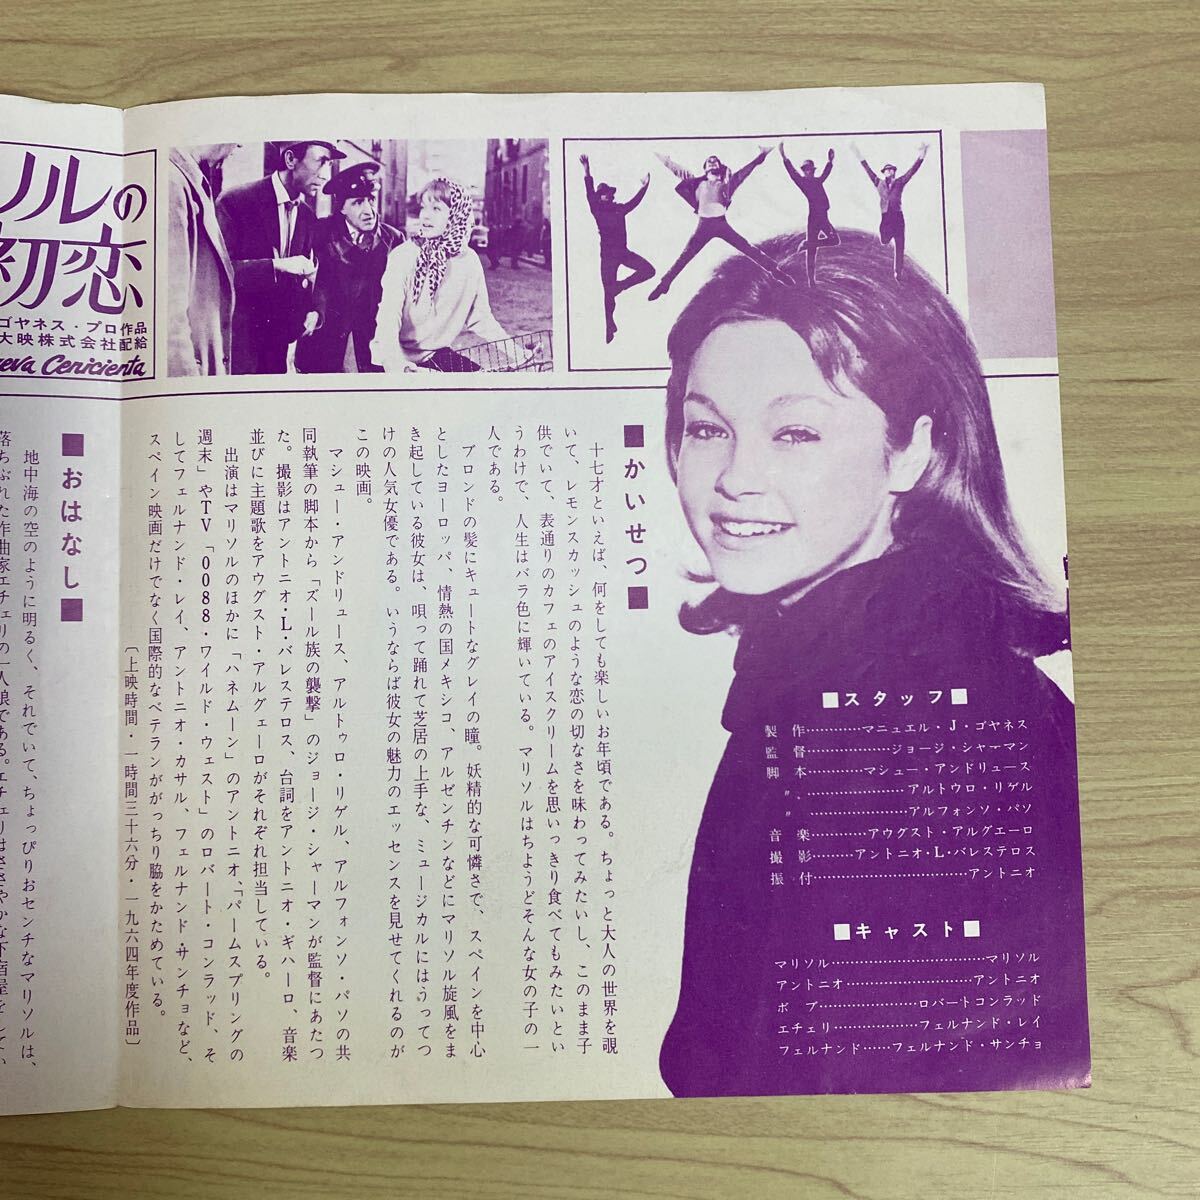 ソルの
初恋
ゴヤネス・プロ作品
大映株式会社配給
ueva Cenicienta
■かいせつ■
十七才といえば、何をしても楽しいお年頃である。ちょっと大人の世界を覗
いて、レモンスカッシュのような恋の切なさを味わってみたいし、このまま子
供でいて、表通りのカフェのアイスクリームを思いっきり食べてもみたいとい
うわけで、人生はバラ色に輝いている。マリソルはちようどそんな女の子の一
人である。
ブロンドの髪にキュートなグレイの瞳。妖精的な可憐さで、スペインを中心
としたヨーロッパ、情熱の国メキシコ、アルゼンチンなどにマリソル旋風をま
き起している彼女は、唄って踊れて芝居の上手な、ミュージカルにはうってつ
けの人気女優である。いうならば彼女の魅力のエッセンスを見せてくれるのが
この映画。
マシュー・アンドリュース、アルトゥロ・リゲル、アルフォンソ・パソの共
同執筆の脚本から「ズール族の襲撃」のジョージ・シャーマンが監督にあたつ
た。撮影はアントニオ・L・バレステロス、台詞をアントニオ・ギハーロ、音楽
並びに主題歌をアウグスト・アルグェーロがそれぞれ担当している。
出演はマリソルのほかに「ハネムーン」のアントニオ、「パームスプリングの
週末」やTV「0088・ワイルド・ウェスト」のロバート・コンラッド、そ
してフェルナンド・レイ、アントニオ・カサル、フェルナンド・サンチョなど、
スペイン映画だけでなく国際的なベテランががっちり脇をかためている。
〔上映時間・一時間三十六分・一九六四年度作品〕
■おはなし■
地中海の空のように明るく、それでいて、ちょっぴりおセンチなマリソルは、
落ちぶれた作曲家エチェリの一人娘である。エチェリはささやかな下宿屋をしてい
■スタッフ■
製作…………マニュエル・J・ゴヤネス
監督………………ジョージ・シャーマン
脚本…………マシュー・アンドリュース
〃…………………アルトウロ・リゲル
〃…………………アルフォンソ・パソ
音楽…………アウグスト・アルグエーロ
撮影………アントニオ・L・バレステロス
振付……………………………アントニオ
■キャスト■
マリソル……………………………マリソル
アントニオ………………………アントニオ
ボブ…………………ロバートコンラッド
エチェリ………………フェルナンド・レイ
フェルナンド……フェルナンド・サンチョ